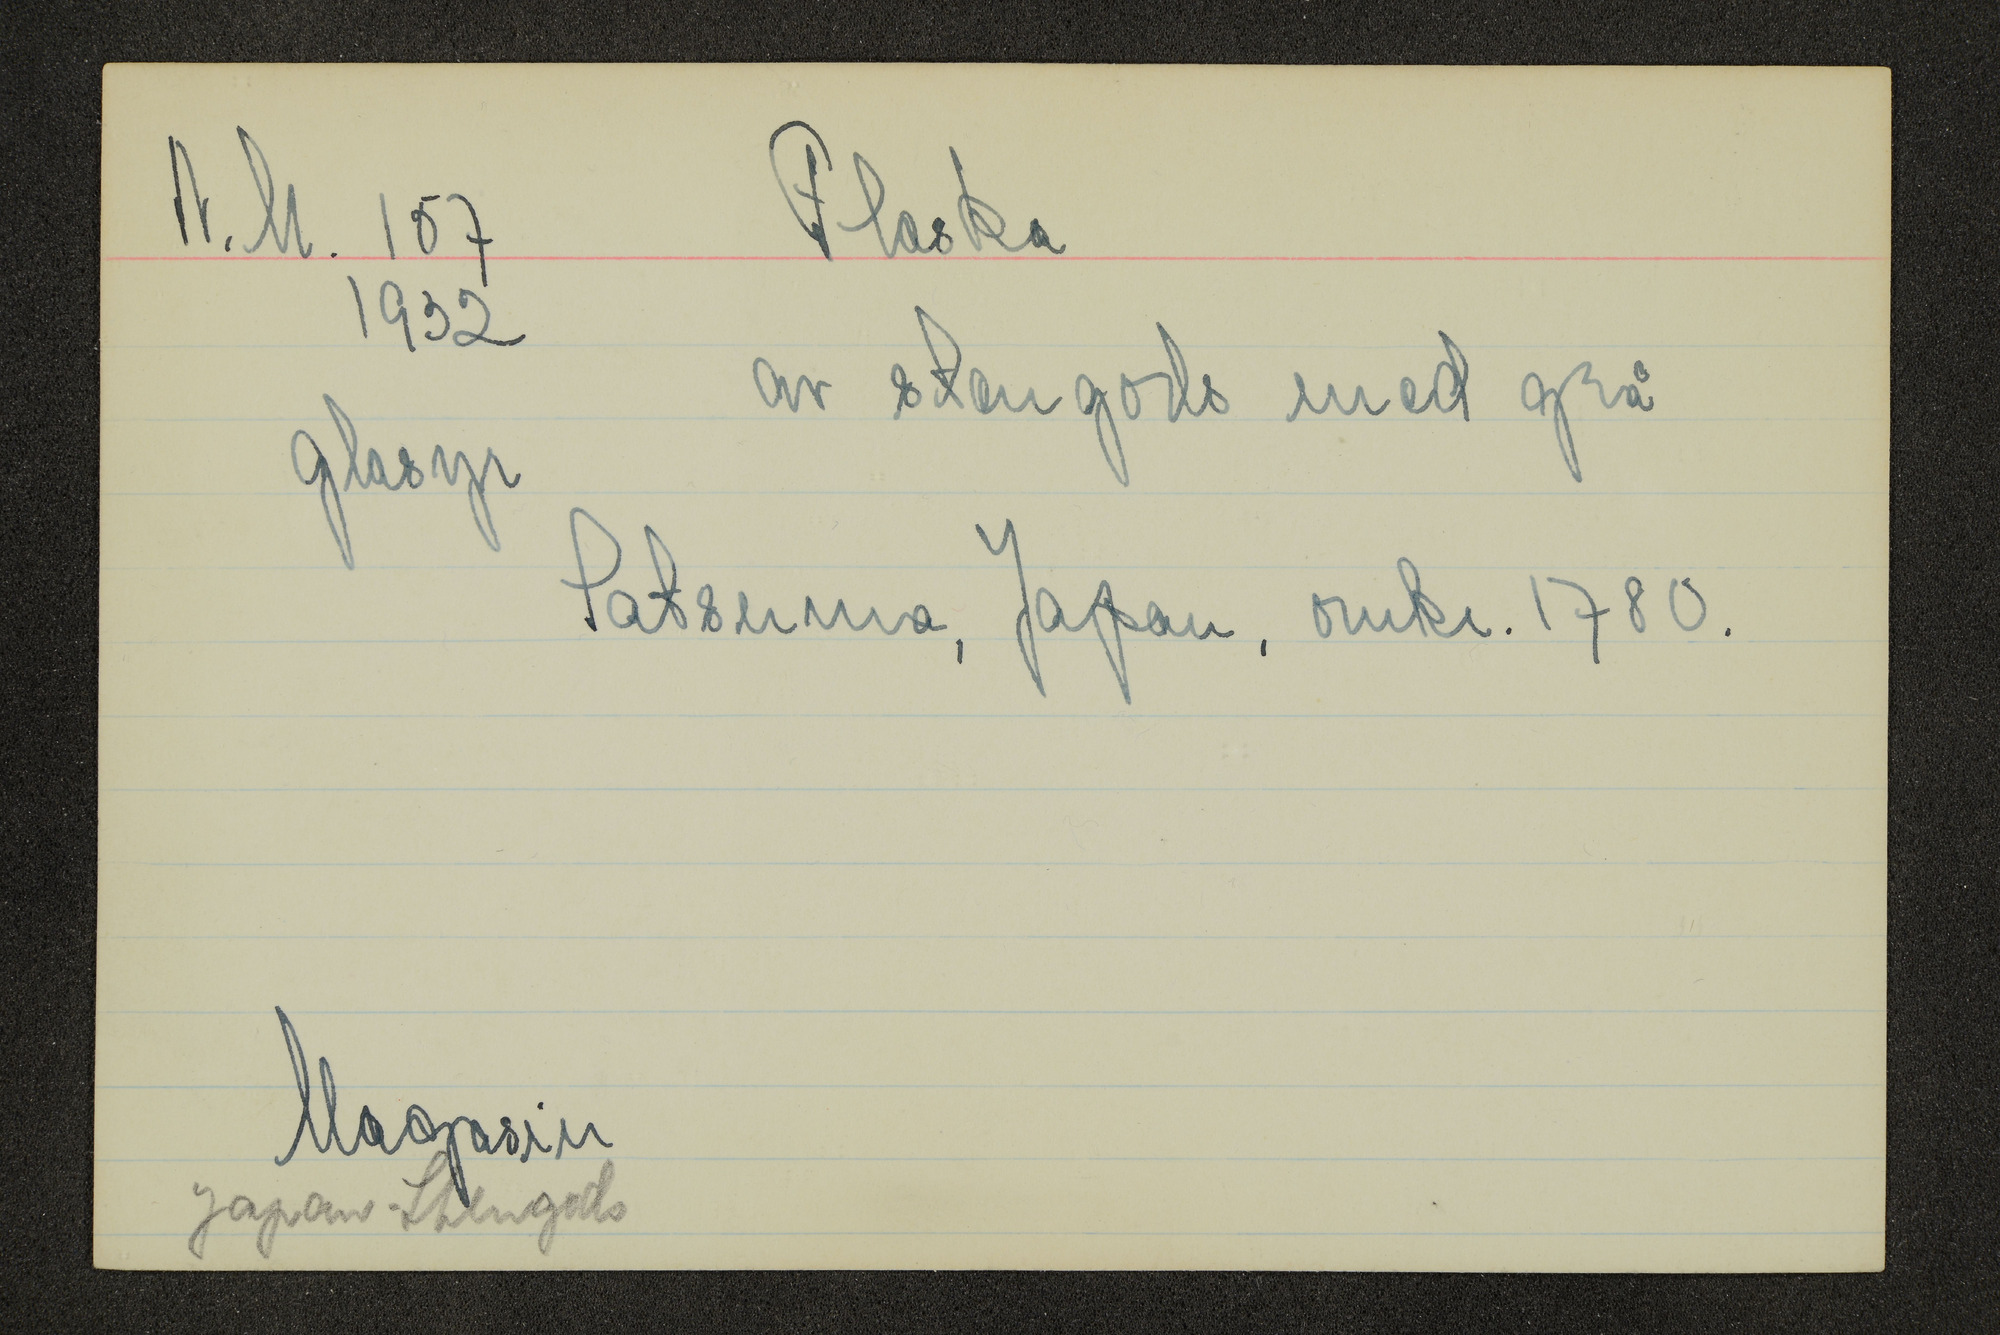 N.M. 157 Flaska
1932
av stengods med grå
glasyr
Satsuma, Japan, omkr. 1780.
Magasin
Japan-Stengods